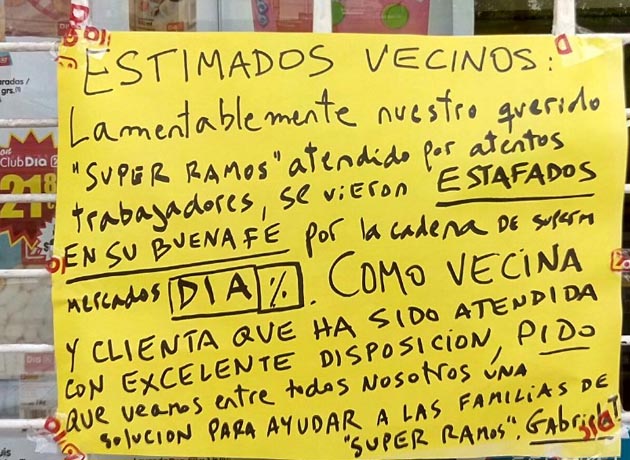 ESTIMADOS VECINOS:
Lamentablemente nuestro querido
"SUPER RAMOS" atendido por atentos
trabajadores, se vieron ESTAFADOS
EN SU BUENA FE por la cadena DE superm
mercados DIA %. COMO VECINA
Y CLIENTA QUE HA SIDO ATENDIDA
CON EXCELENTE DISPOSICION, PIDO
que veamos entre todos NOSOTROS UNA
SOLUCION PARA AYUDAR A LAS FAMILIAS DE
"SUPER RAMOS".
Club Dia
21